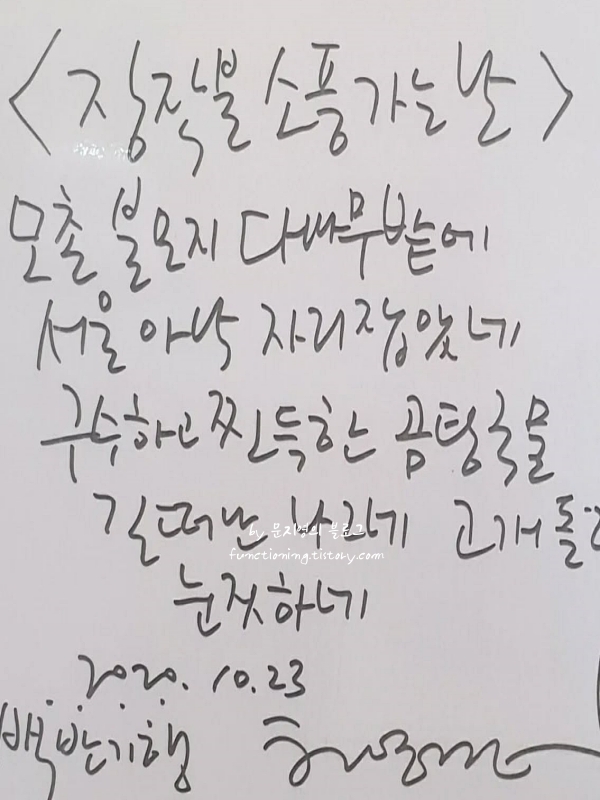 <장작불 소풍가는 날>
모촌 불모지 대나무밭에
서울 아낙 자리잡았네
구수하고 찐득한 곰탕국물
길떠난 나그네 고개 돌
by 문지영의 블로그
functioning.tistory.com
눈짓하네
2020. 10.23
백반기행